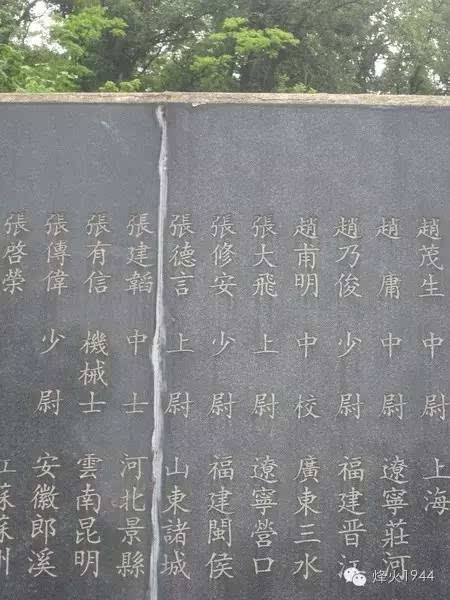 趙茂生 中尉 上海
趙庸 中尉 遼寧莊河
趙乃俊 少尉 福建晋江
趙甫明 中校 廣東三水
張大飛 上尉 遼寧營口
張修安 少尉 福建閩侯
張德言 上尉 山東諸城
張建韜 中士 河北景縣
張有信 機械士 雲南昆明
張傳偉 少尉 安徽郎溪
張啓榮 江蘇蘇州
烽火1944